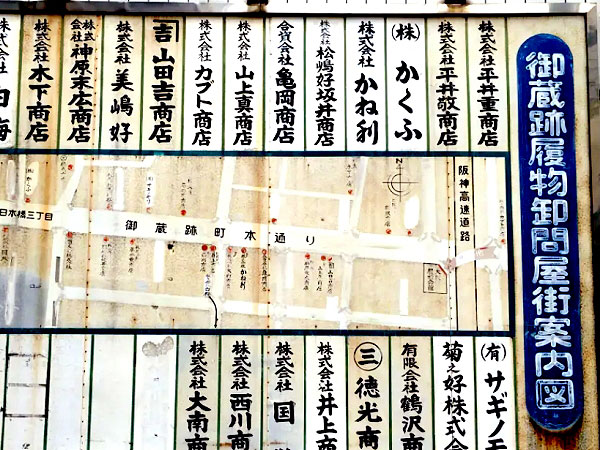 御蔵跡履物卸問屋街案内図
株式会社平井重商店
株式会社平井敬商店
(株)かくふ
株式会社かね利
株式会社松嶋好坂井商店
合資会社亀岡商店
株式会社山上真商店
株式会社カブト商店
吉山田吉商店
株式会社美嶋好
株式会社神原末広商店
株式会社木下商店
株式会社
N
阪神高速道路
日本橋三丁目
御蔵跡町本通り
かね利
(有)サギノモ
菊之好株式会
有限会社鶴沢商
三徳光商
株式会社井上商
株式会社国
株式会社西川商
株式会社大南商